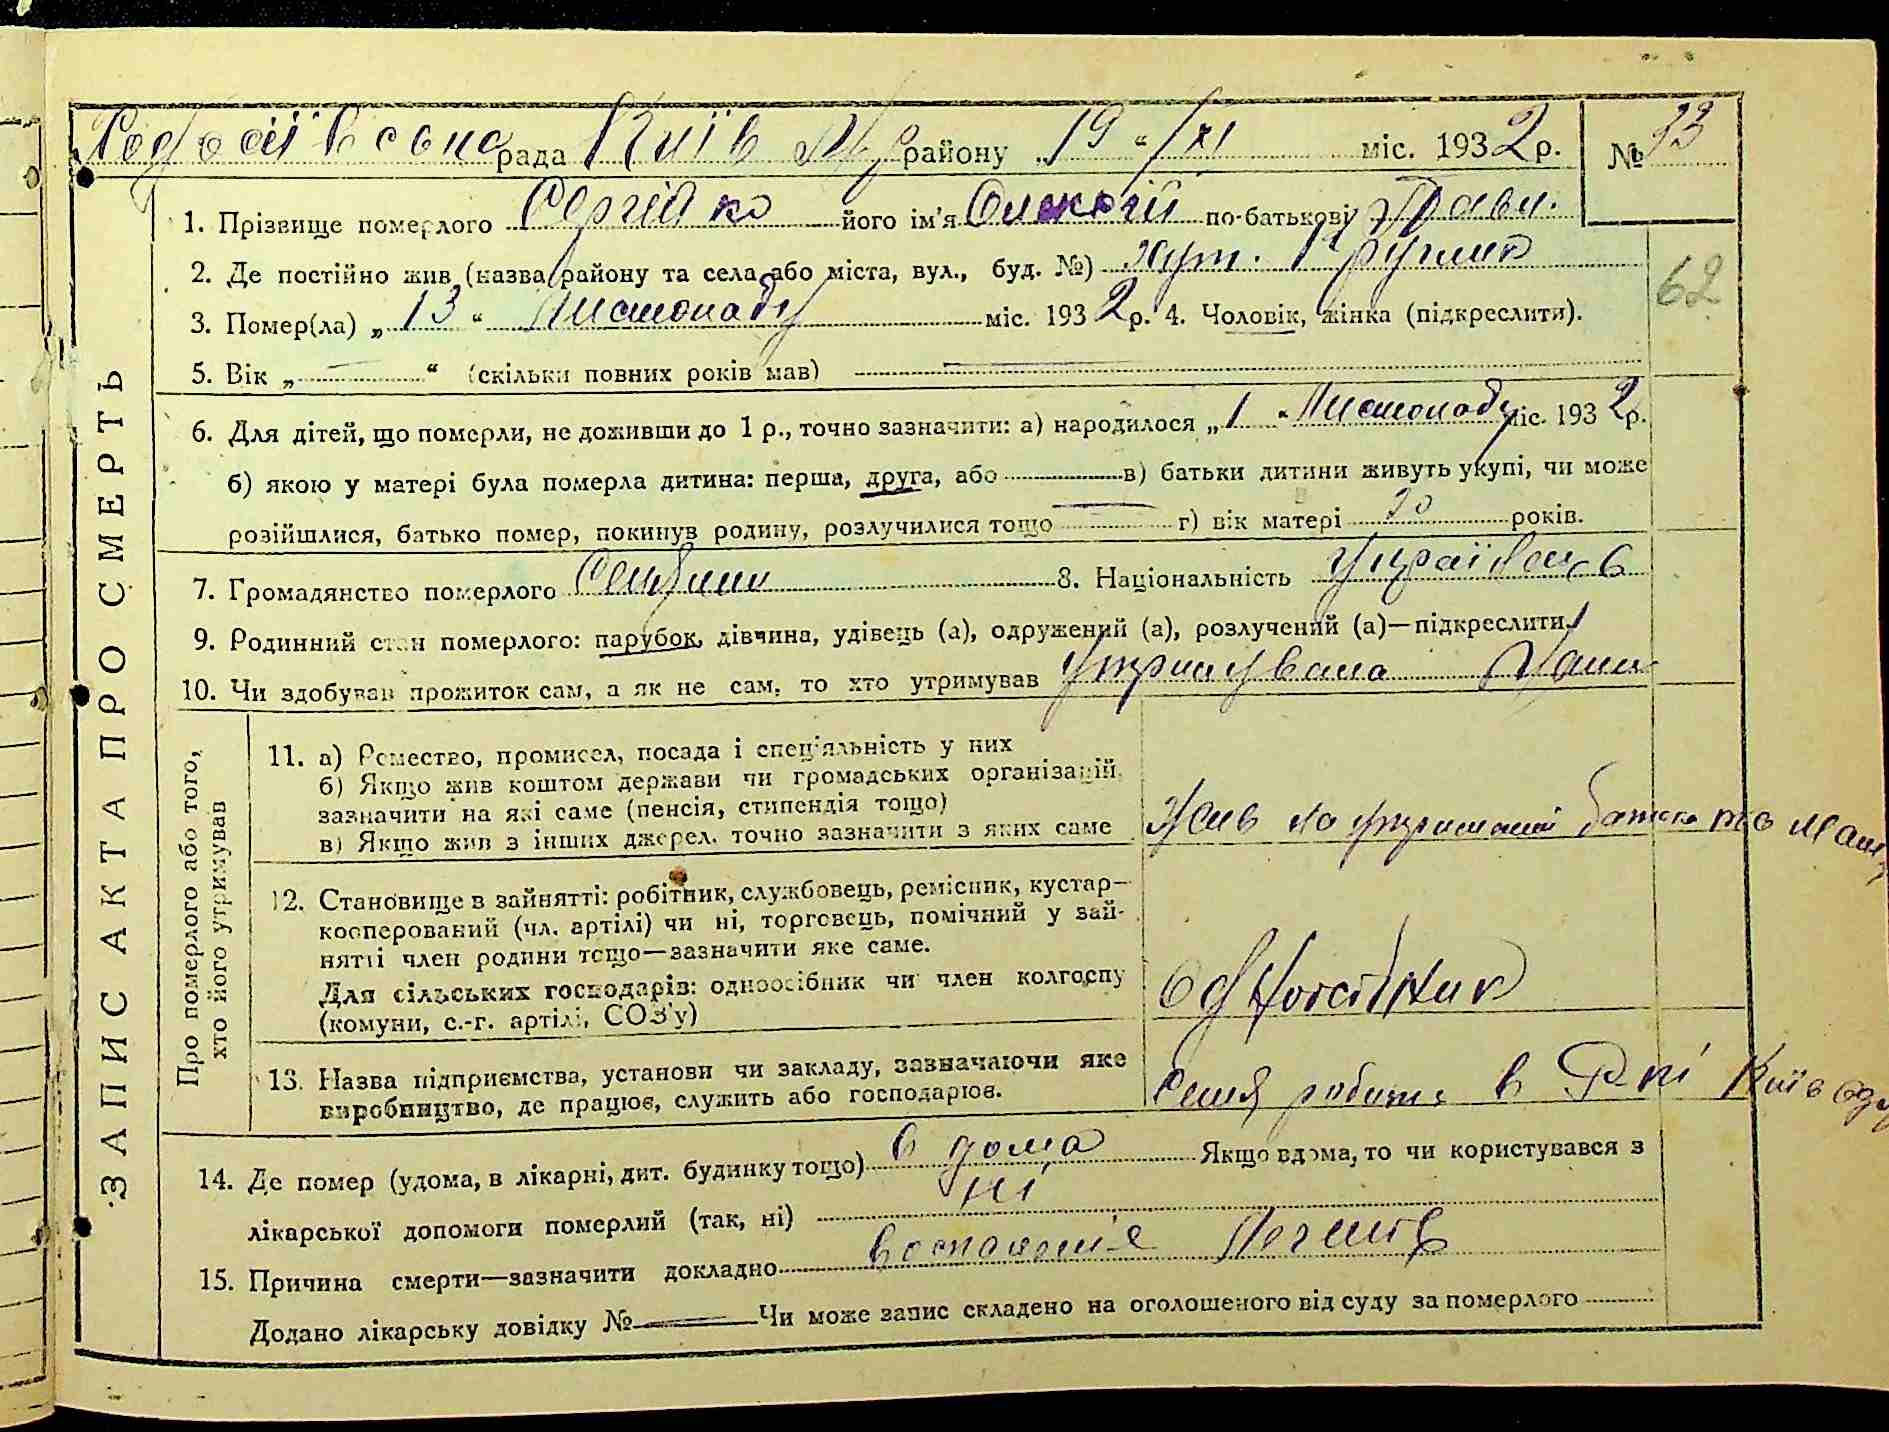 рада Київ району „19“ XI міс. 1932 р. №
1. Прізвище померлого Сергійко його ім'я Олексій по-батькові Павл.
2. Де постійно жив (назва району та села або міста, вул., буд. №) хут. Круглик
62
3. Помер(ла) „13“ Листопаду міс. 1932 р. 4. Чоловік, жінка (підкреслити).
5. Вік „ — “ (скільки повних років мав) —
6. Для дітей, що померли, не доживши до 1 р., точно зазначити: а) народилося „1“ Листопаду міс. 1932 р.
б) якою у матері була померла дитина: перша, друга, або в) батьки дитини живуть укупі, чи може
розійшлися, батько помер, покинув родину, розлучилися тощо — г) вік матері років.
7. Громадянство померлого 8. Національність Українець
9. Родинний стан померлого: парубок, дівчина, удівець (а), одружений (а), розлучений (а)—підкреслити
10. Чи здобував прожиток сам, а як не сам, то хто утримував утримувала
ЗАПИС АКТА ПРО СМЕРТЬ
Про померлого або того,
хто його утримував
11. а) Ремество, промисел, посада і спец'яльність у них
б) Якщо жив коштом держави чи громадських організацій,
зазначити на які саме (пенсія, стипендія тощо)
в) Якщо жив з інших джерел, точно зазначити з яких саме
Жив на утриманні батька та
12. Становище в зайнятті: робітник, службовець, ремісник, кустар—
кооперований (чл. артілі) чи ні, торговець, помічний у зай-
нятті член родини тощо—зазначити яке саме.
Для сільських господарів: одноосібник чи член колгоспу
(комуни, с.-г. артілі, СОЗ'у)
Одноосібник
13. Назва підприємства, установи чи закладу, зазначаючи яке
виробництво, де працює, служить або господарює.
в
14. Де помер (удома, в лікарні, дит. будинку тощо) в дома Якщо вдома, то чи користувався з
лікарської допомоги померлий (так, ні) ні
15. Причина смерти—зазначити докладно воспаленіе Легенів
Додано лікарську довідку № — Чи може запис складено на оголошеного від суду за померлого